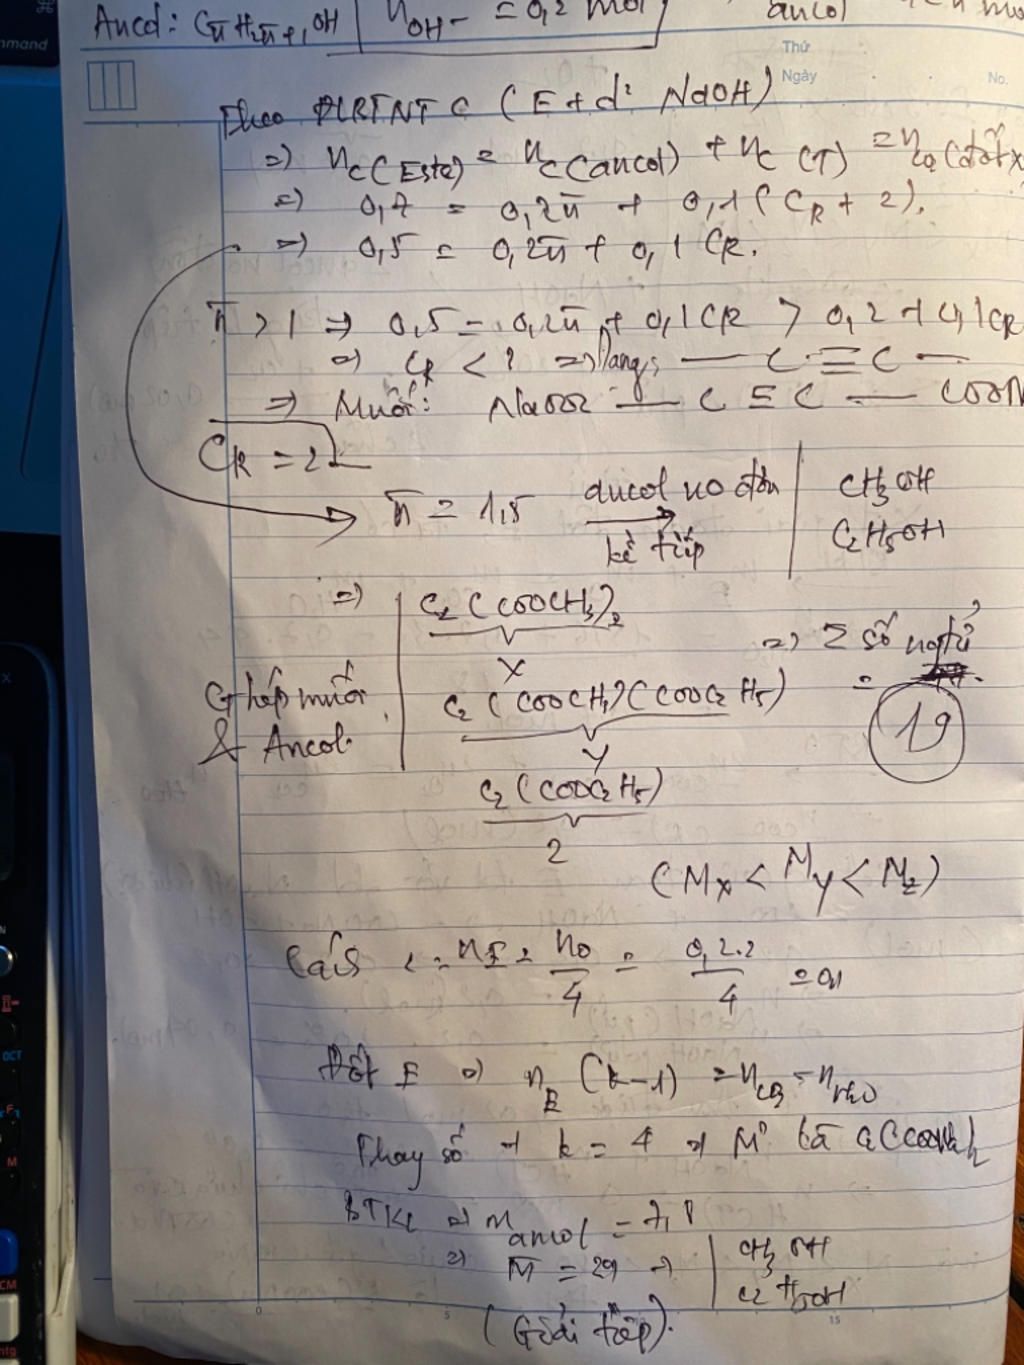 Ancol: Cn̄H2n̄+1OH | nOH- = 0,2 mol
ancol
Thứ
Ngày
No.
Theo ĐLBTNT C (E + d² NaOH)
=) nC(Este) = nC(ancol) + nC(T) = nCO2(đốt x
=) 0,7 = 0,2n̄ + 0,1(CR + 2).
=) 0,5 = 0,2n̄ + 0,1CR.
n̄ > 1 => 0,5 = 0,2n̄ + 0,1CR > 0,2 + 0,1CR
=) CR < ? => Dạng: — C ≡ C —
=> Muối: NaOOC — C ≡ C — COON
CR = 2
n̄ = 1,5 ancol no đơn kế tiếp | CH3OH
C2H5OH
=) | C2(COOCH3)2
X
=) Σ số ngtử
Ghép muối & Ancol.
C2(COOCH3)(COOC2H5)
= 19
Y
C2(COOC2H5)
Z
(MX < MY < MZ)
Cách 2: nE = nO/4 = 0,2.2/4 = 0,1
Đốt E =) nE (k-1) = nCO2 - nH2O
Thay số => k = 4 => M' là C2(COONa)2
BTKL => mancol = 7,8
=) M̄ = 39 => | CH3OH
C2H5OH
(Giải tiếp).
0
5
15
mmand
OCT
M
CM